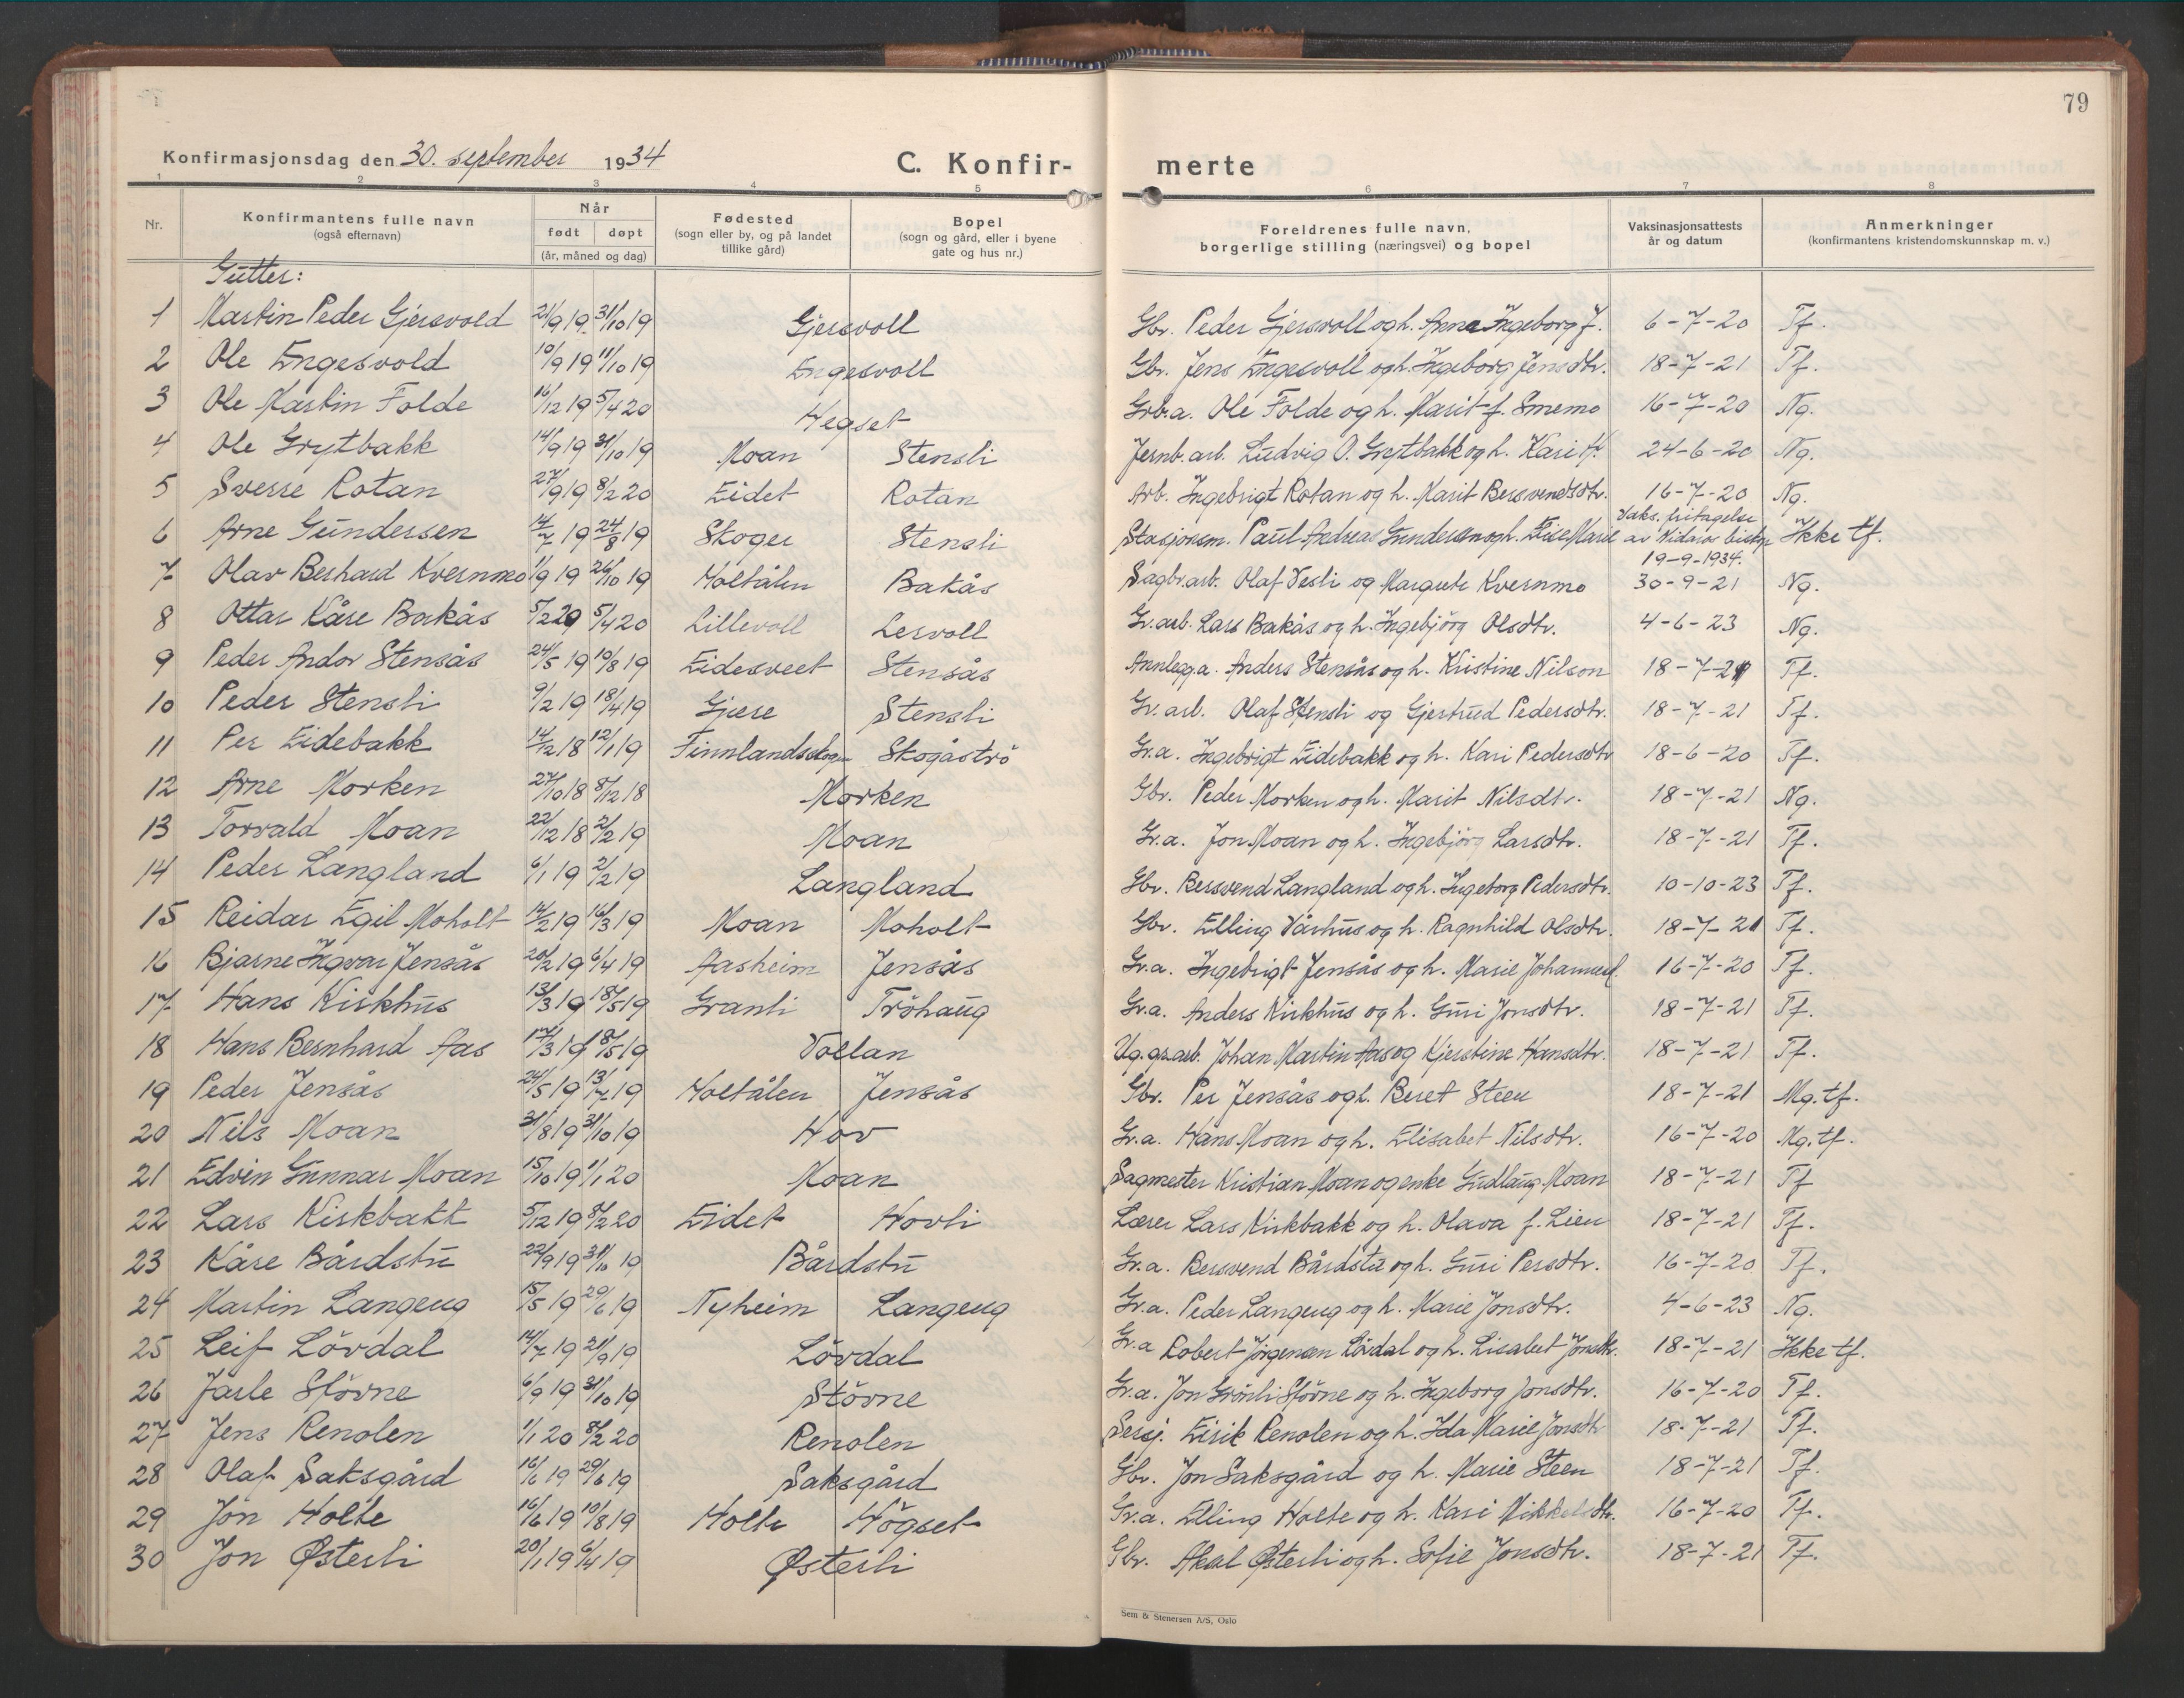 79
Konfirmasjonsdag den 30. september 1934 C. Konfir- merte
1 2 3 4 5 6 7 8
Nr. Konfirmantens fulle navn (også efternavn) Når født døpt (år, måned og dag) Fødested (sogn eller by, og på landet tillike gård) Bopel (sogn og gård, eller i byene gate og hus nr.) Foreldrenes fulle navn, borgerlige stilling (næringsvei) og bopel Vaksinasjonsattests år og datum Anmerkninger (konfirmantens kristendomskunnskap m. v.)
Gutter:
1 Martin Peder Gjersvold 21/9 19 31/10 19 Gjersvoll Gbr. Peder Gjersvoll og h. Anna Ingeborg J. 6-7-20 Tf.
2 Ole Engesvold 10/9 19 11/10 19 Engesvoll Gbr. Jens Engesvoll og h. Ingeborg Jensdtr. 18-7-21 Tf.
3 Ole Martin Folde 16/12 19 5/4 20 Hegset Grb.a. Ole Folde og h. Marit f. Smemo 16-7-20 Ng.
4 Ole Grytbakk 14/9 19 31/10 19 Moan Stensli Jernb.arb. Ludvig O. Grytbakk og h. Kari H. 24-6-20 Ng.
5 Sverre Rotan 27/9 19 8/2 20 Eidet Rotan Arb. Ingebrigt Rotan og h. Marit Bersvendsdtr. 16-7-20 Ng.
6 Arne Gundersen 14/7 19 24/8 19 Skoger Stensli Stasjonsm. Paul Andreas Gundersen og h. Elise Marie Vaks. fritagelse av Nidaros bisp 19-9-1934. Ikke tf.
7 Olav Berhard Kvernmo 1/9 19 26/10 19 Holtålen Bakås Sagbr.arb. Olaf Vesli og Margrete Kvernmo 30-9-21 Ng.
8 Ottar Kåre Bakås 5/2 20 5/4 20 Lillevoll Lervoll Gr.arb. Lars Bakås og h. Ingebjörg Olsdtr. 4-6-23 Ng.
9 Peder Andor Stensås 24/5 19 10/8 19 Eidesveet Stensås Annlegg.a. Anders Stensås og h. Kristine Nilson 18-7-21 Tf.
10 Peder Stensli 9/2 19 18/4 19 Gjære Stensli Gr.arb. Olaf Stensli og Gjertrud Pedersdtr. 18-7-21 Tf.
11 Per Eidebakk 14/12 18 12/1 19 Finnlandsskogen Skogåströ Gr.a. Ingebrigt Eidebakk og h. Kari Pedersdtr 18-6-20 Tf.
12 Arne Morken 27/10 18 8/12 18 Morken Gbr. Peder Morken og h. Marit Nilsdtr. 18-7-21 Ng.
13 Torvald Moan 22/12 18 2/2 19 Moan Gr.a. Jon Moan og h. Ingebjörg Larsdtr. 18-7-21 Tf.
14 Peder Langland 6/1 19 2/2 19 Langland Gbr. Bersvend Langland og h. Ingeborg Pedersdtr. 10-10-23 Tf.
15 Reidar Egil Moholt 14/2 19 16/3 19 Moan Moholt Gbr. Elling Vårhus og h. Ragnhild Olsdtr. 18-7-21 Tf.
16 Bjarne Ingvar Jensås 20/2 19 6/4 19 Aasheim Jensås Gr.a. Ingebrigt Jensås og h. Marie 16-7-20 Tf.
17 Hans Kirkhus 13/3 19 18/5 19 Granli Tröhaug Gr.a. Anders Kirkhus og h. Guri Jonsdtr. 18-7-21 Tf.
18 Hans Bernhard Aas 17/3 19 18/5 19 Vollan Ug.gr.arb. Johan Martin Aas og Kjerstine Hansdtr. 18-7-21 Tf.
19 Peder Jensås 24/5 19 13/7 19 Holtålen Jensås Gbr. Per Jensås og h. Beret Steen 18-7-21 Mg.tf.
20 Nils Moan 31/8 19 31/10 19 Hov Gr.a. Hans Moan og h. Elisabet Nilsdtr. 16-7-20 Mg.tf.
21 Edvin Gunnar Moan 15/10 19 1/1 20 Moan Sagmester Kristian Moan og enke Gudlaug Moan 18-7-21 Tf
22 Lars Kirkbakk 5/12 19 8/2 20 Eidet Hovli Lærer Lars Kirkbakk og h. Olava f. Lien 18-7-21 Tf.
23 Kåre Bårdstu 22/9 19 31/10 19 Bårdstu Gr.a. Bersvend Bårdstu og h. Guri Persdtr. 16-7-20 Tf.
24 Martin Langeng 15/5 19 29/6 19 Nyheim Langeng Gr.a. Peder Langeng og h. Marie Jonsdtr. 4-6-23 Ng.
25 Leif Lövdal 14/7 19 21/9 19 Lövdal Gr.a Robert Jörgensen Lövdal og h. Lisabet Jonsdtr. 18-7-21 Ikke tf.
26 Jarle Störne 6/9 19 31/10 19 Störne Gr.a. Jon Grönli Störne og h. Ingeborg Jonsdtr. 16-7-20 Tf.
27 Jens Renolen 1/1 20 8/2 20 Renolen Sersj. Eirik Renolen og h. Ida Marie Jonsdtr 18-7-21 Tf.
28 Olaf Saksgård 16/6 19 29/6 19 Saksgård Gbr. Jon Saksgård og h. Marie Steen 18-7-21 Tf.
29 Jon Holte 16/6 19 10/8 19 Holte Högset Gr.a. Elling Holte og h. Kari Mikkelsdtr. 16-7-20 Tf.
30 Jon Østerli 20/1 19 6/4 19 Østerli Gbr. Aksel Østerli og h. Sofie Jonsdtr. 18-7-21 Tf.
Sem & Stenersen A/S, Oslo